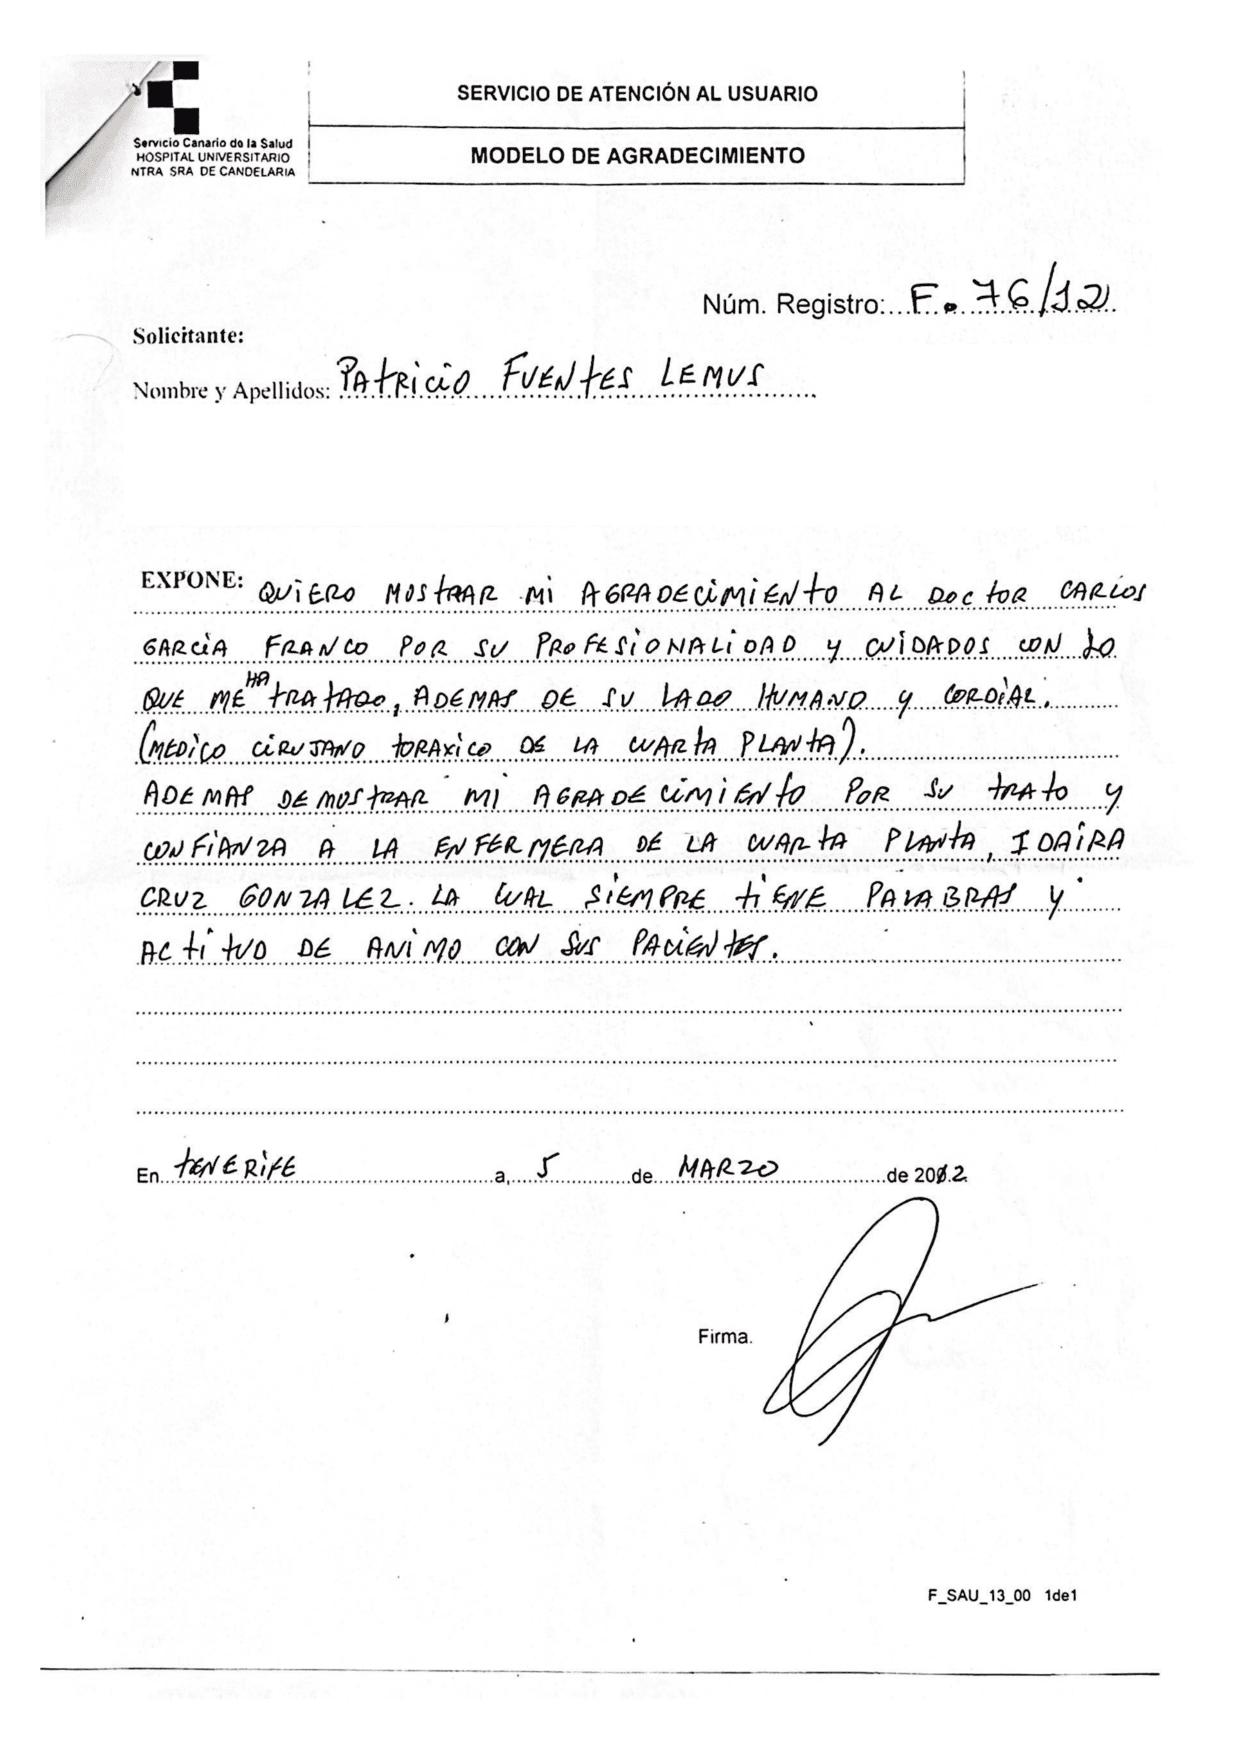 Servicio Canario de la Salud
HOSPITAL UNIVERSITARIO
NTRA SRA DE CANDELARIA
SERVICIO DE ATENCIÓN AL USUARIO
MODELO DE AGRADECIMIENTO
Núm. Registro: F. 76/12
Solicitante:
Nombre y Apellidos: PAtRiCiO FUENtES LEMUS
EXPONE: QUiERO MOStRAR Mi AGRADECiMiENtO AL DOCtOR CARLOS
GARCiA FRANCO POR SU PROFESiONALiDAD y CUiDADOS CON LO
QUE ME HA tRATADO, ADEMAS DE SU LADO HUMANO y CORDiAL.
(MEDiCO CiRUJANO tORAXiCO DE LA CUARtA PLANtA).
ADEMAS DEMOStRAR Mi AGRADECiMiENtO POR SU tRAtO y
CONFiANZA A LA ENFERMERA DE LA CUARtA PLANtA, IDAiRA
CRUZ GONZALEZ. LA CUAL SiEMPRE tiENE PALABRAS y
ACtitUD DE ANiMO CON SUS PACiENtES.
En tENERiFE a, 5 de MARZO de 2012
Firma.
F_SAU_13_00 1de1